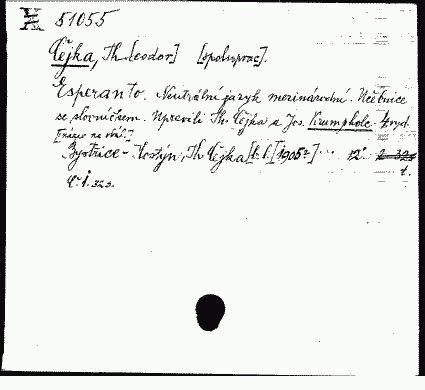 51055
Čejka, Th[eodor] [spoluprac].
Esperanto. Neutrální jazyk mezinárodní. Učebnice
se slovníčkem. Upravili Th. Čejka a Jos. Krumpholc. 4. vyd.
[název na obál.]
Bystřice-Hostýn, Th. Čejka [b. l.] [1905?] 12°
t.